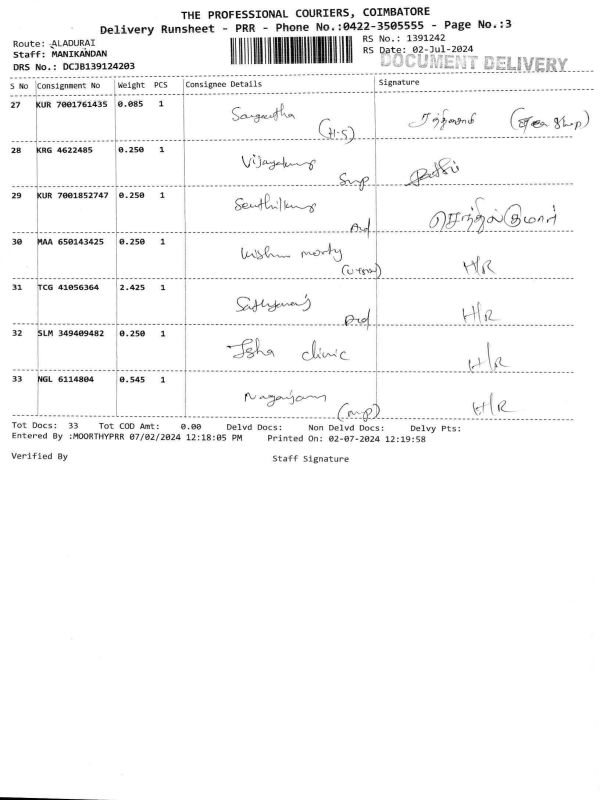 THE PROFESSIONAL COURIERS, COIMBATORE
Delivery Runsheet - PRR - Phone No.:0422-3505555 - Page No.:3
Route: ALADURAI
RS No.: 1391242
Staff: MANIKANDAN
RS Date: 02-Jul-2024
DRS No.: DCJB139124203
DOCUMENT DELIVERY
S No Consignment No Weight PCS Consignee Details Signature
27 KUR 7001761435 0.085 1
(H-S)
28 KRG 4622485 0.250 1 Vijayakumar
29 KUR 7001852747 0.250 1 Senthilkumar செந்தில்குமார்
30 MAA 650143425 0.250 1 Krishna morty H/R
31 TCG 41056364 2.425 1 H/R
32 SLM 349409482 0.250 1 Isha clinic H/R
33 NGL 6114804 0.545 1 Nagarjan H/R
Tot Docs: 33 Tot COD Amt: 0.00 Delvd Docs: Non Delvd Docs: Delvy Pts:
Entered By :MOORTHYPRR 07/02/2024 12:18:05 PM Printed On: 02-07-2024 12:19:58
Verified By Staff Signature